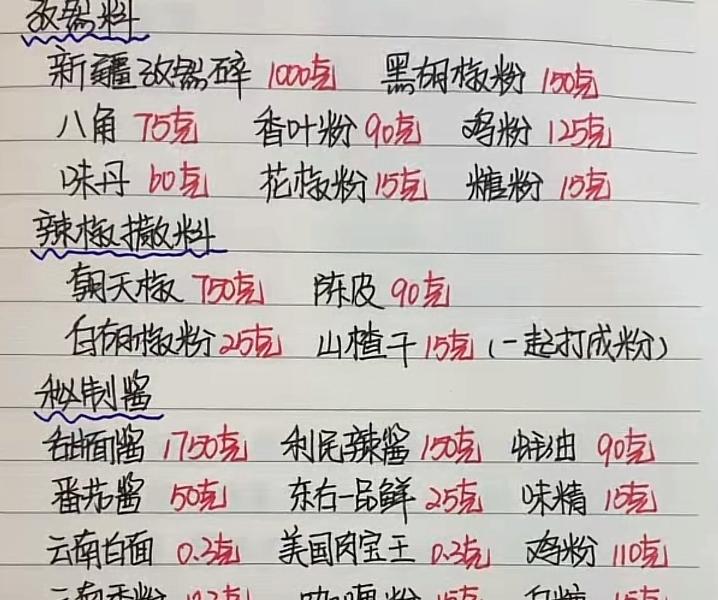 孜然料
新疆孜然碎 1000克 黑胡椒粉 150克
八角 75克 香叶粉 90克 鸡粉 125克
味丹 60克 花椒粉 15克 糖粉 15克
辣椒撒料
朝天椒 750克 陈皮 90克
白胡椒粉 25克 山楂干 15克 (一起打成粉)
秘制酱
甜面酱 1750克 利民辣酱 150克 蚝油 90克
番茄酱 50克 东古一品鲜 25克 味精 15克
云南白面 0.3克 美国肉宝王 0.3克 鸡粉 110克
云南香粉 咖喱粉 15克 白糖 15克